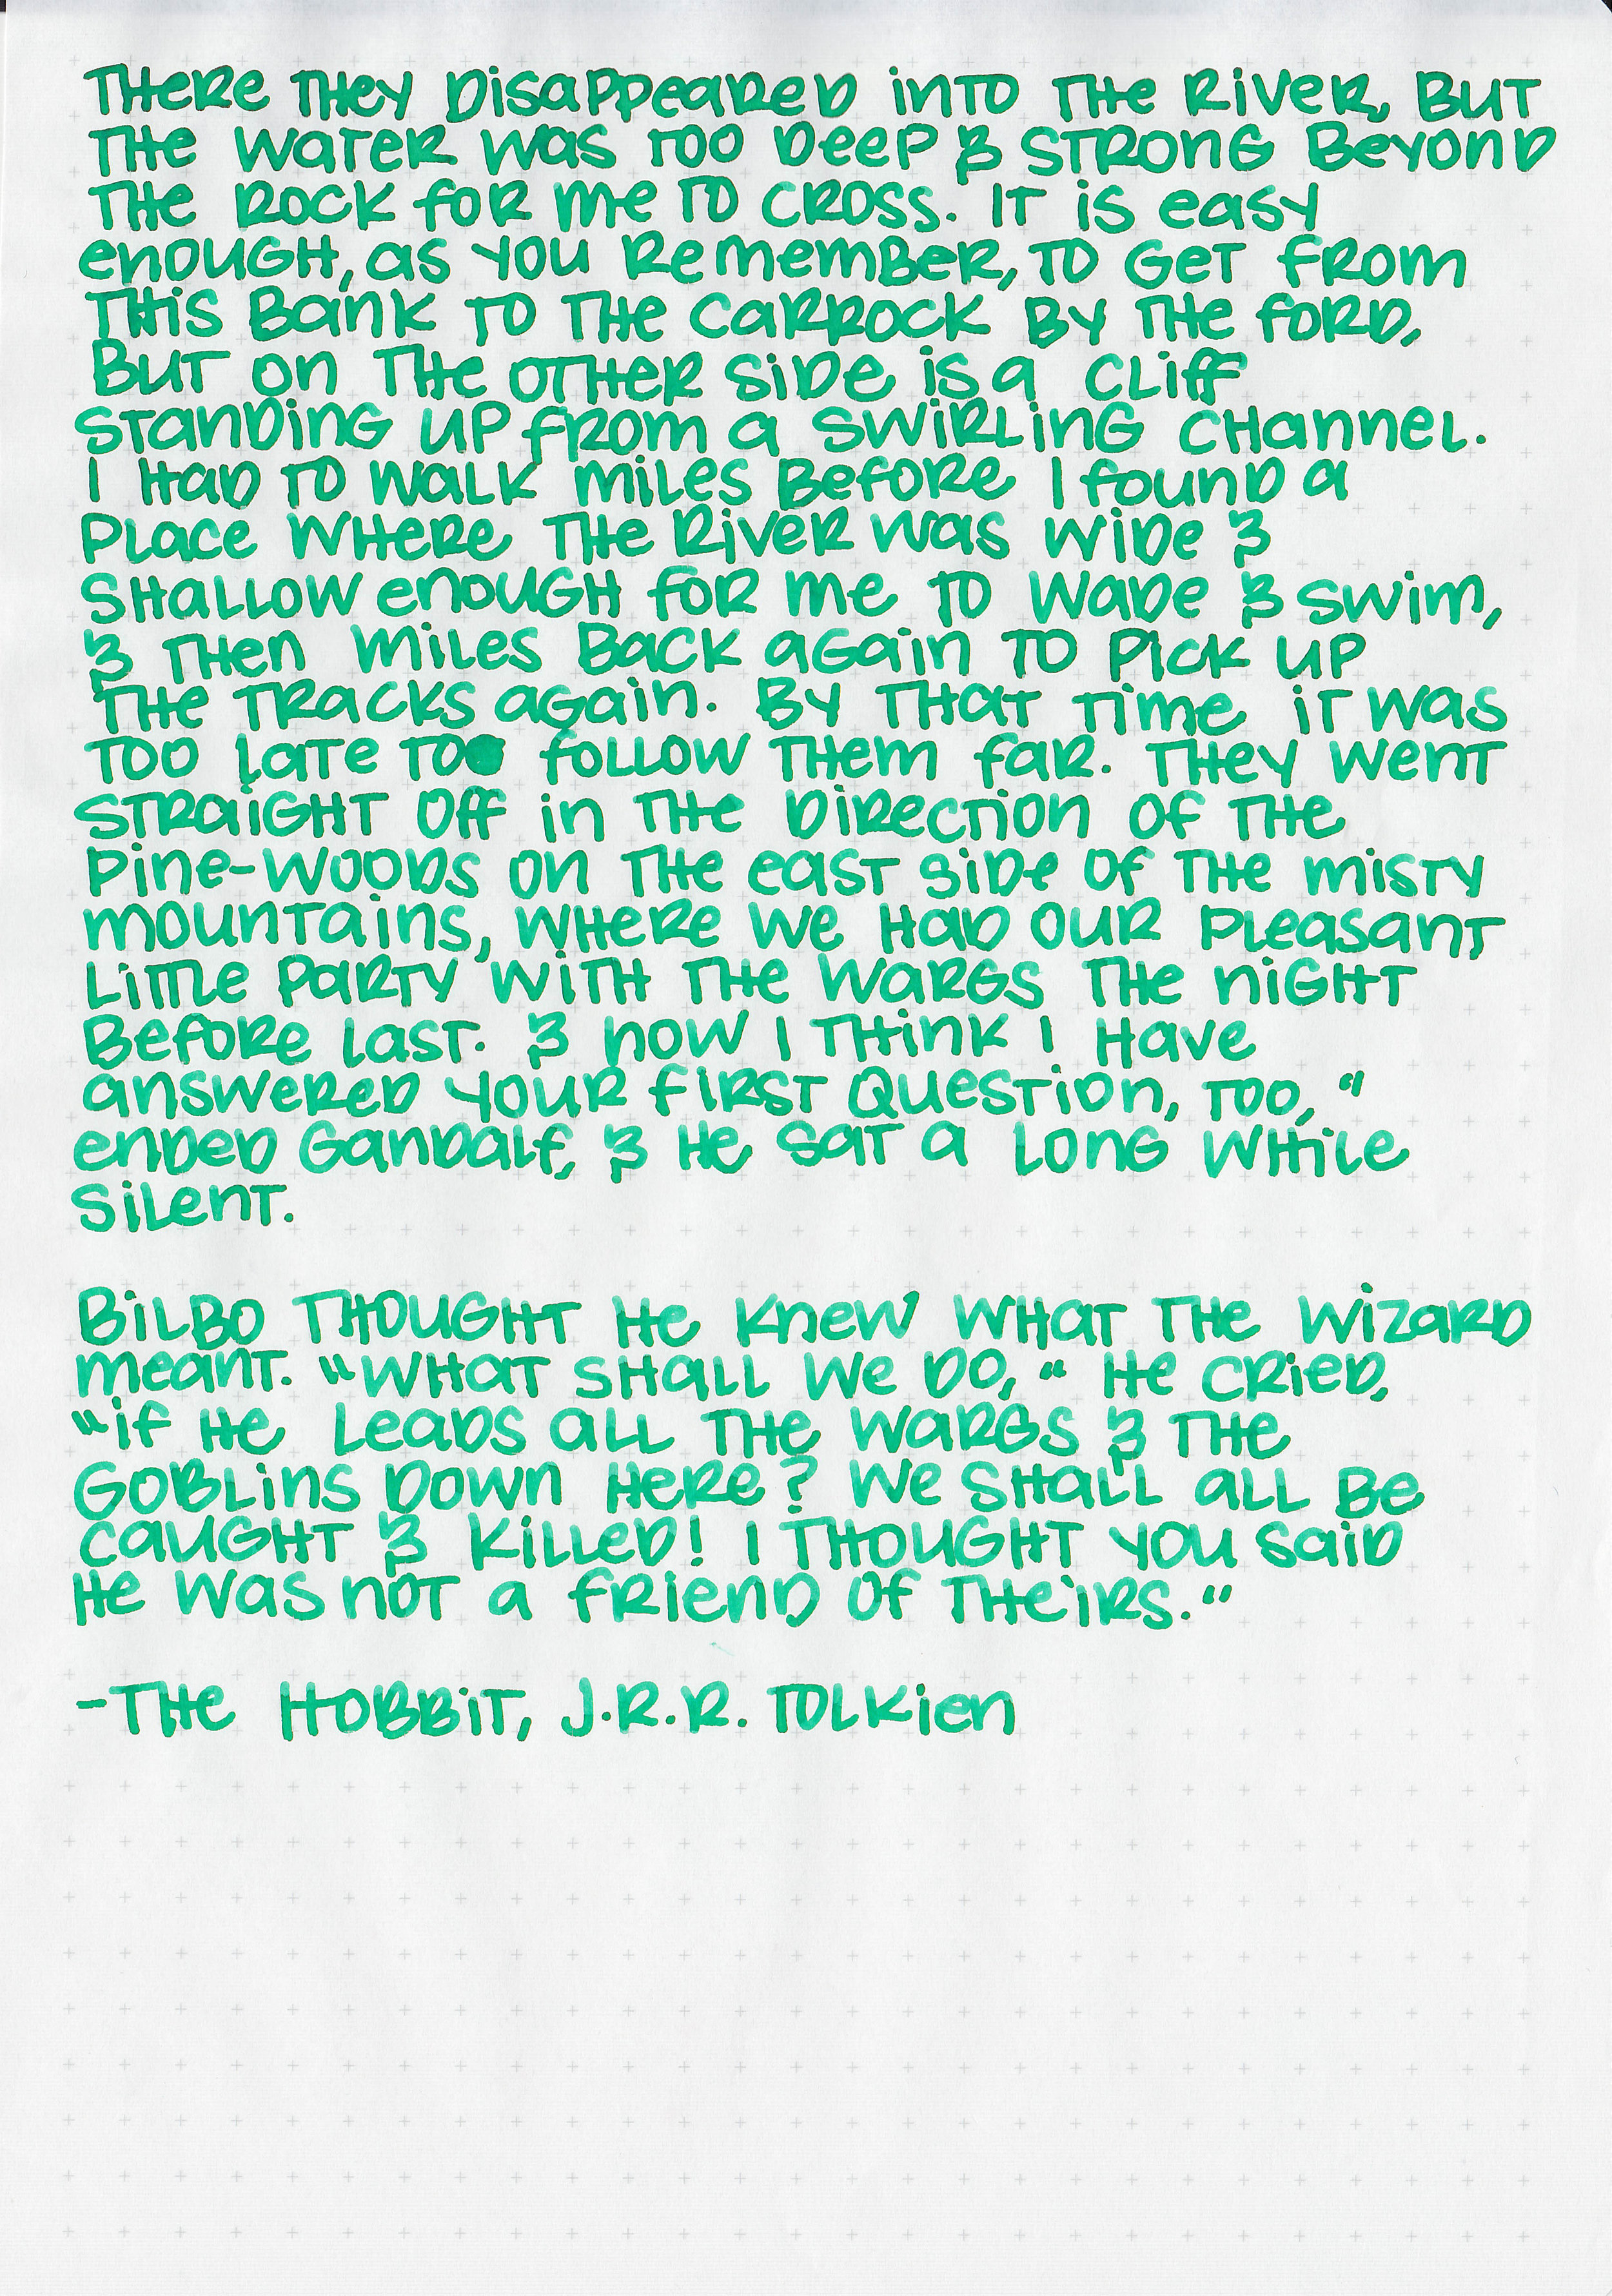 There they disappeared into the river, but
the water was too deep & strong beyond
the rock for me to cross. It is easy
enough, as you remember, to get from
this bank to the Carrock by the ford,
but on the other side is a cliff
standing up from a swirling channel.
I had to walk miles before I found a
place where the river was wide &
shallow enough for me to wade & swim,
& then miles back again to pick up
the tracks again. By that time it was
too late to follow them far. They went
straight off in the direction of the
pine-woods on the east side of the Misty
Mountains, where we had our pleasant
little party with the Wargs the night
before last. & now I think I have
answered your first question, too,"
ended Gandalf, & he sat a long while
silent.

Bilbo thought he knew what the wizard
meant. "What shall we do," he cried,
"if he leads all the Wargs & the
goblins down here? We shall all be
caught & killed! I thought you said
he was not a friend of theirs."

-The Hobbit, J.R.R. Tolkien